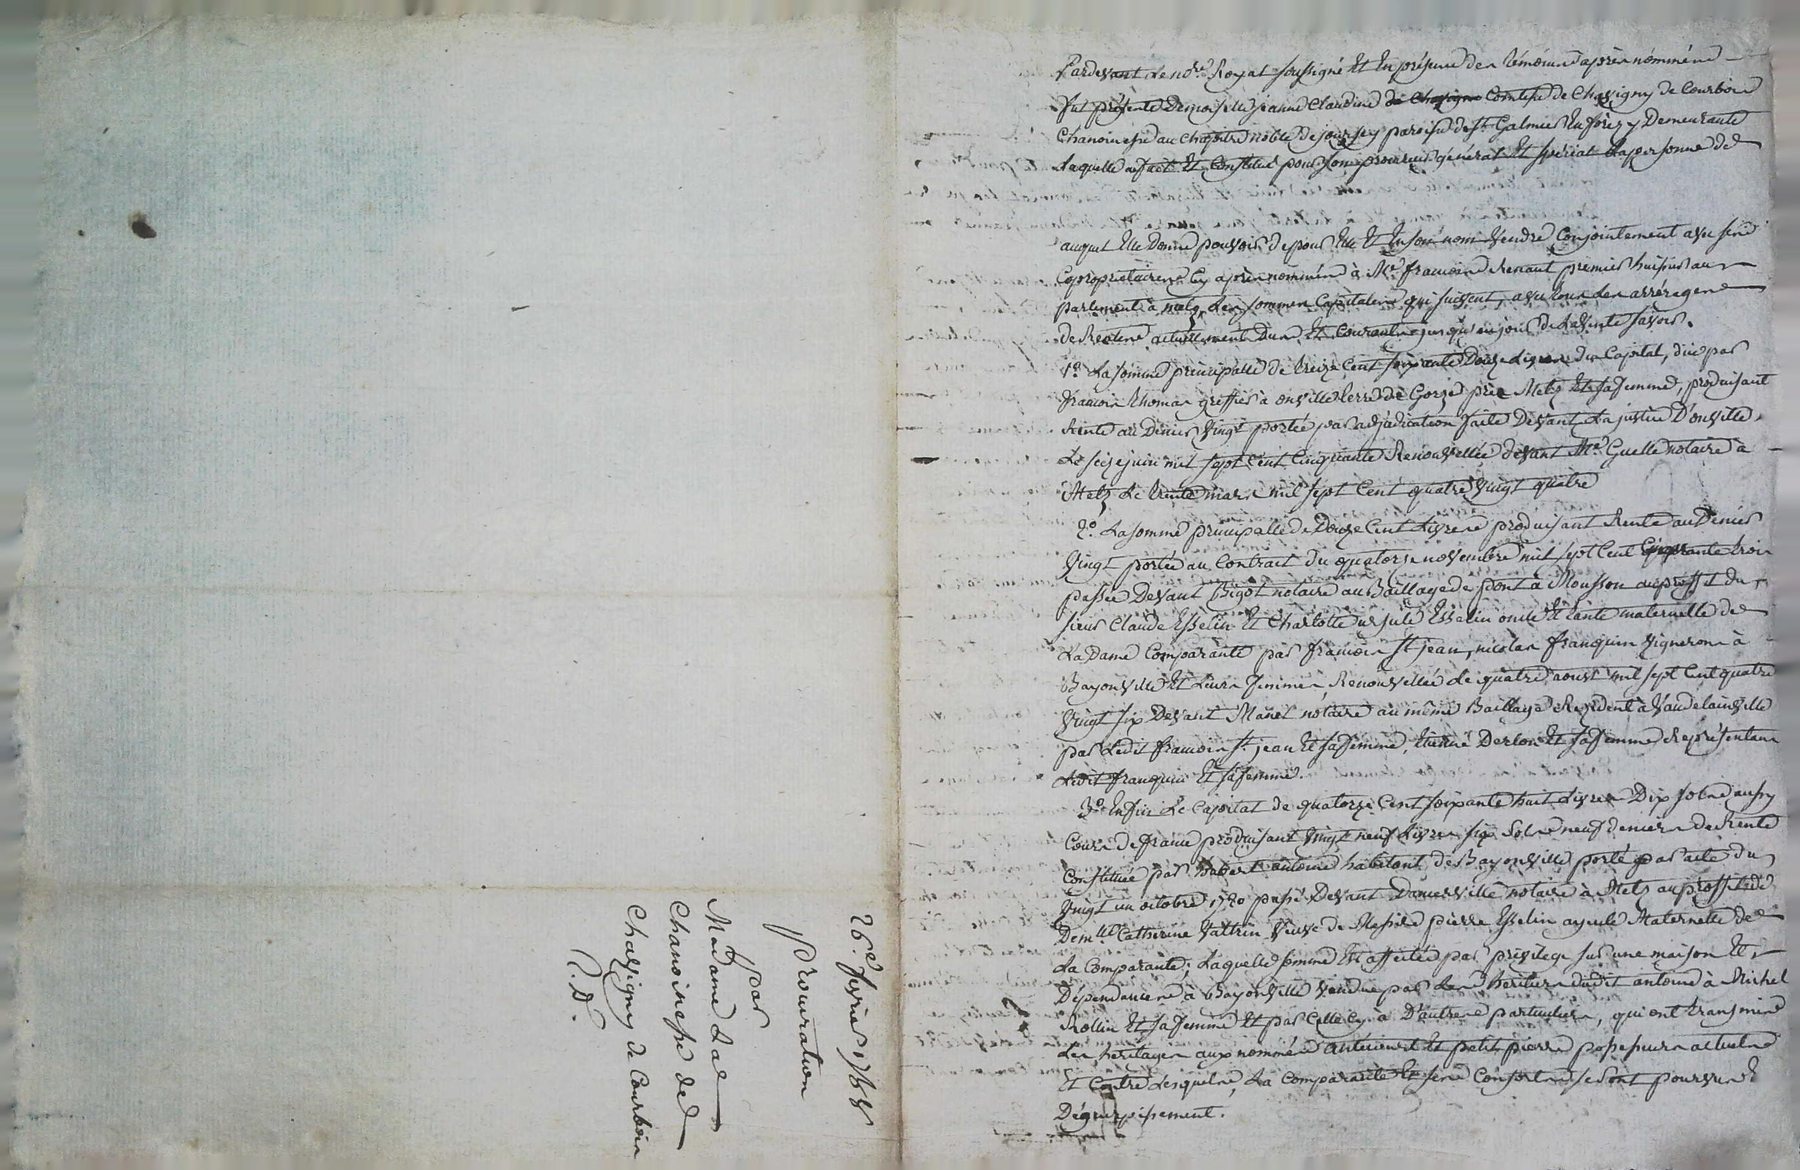 Pardevant le no.re Royal soussigné Et En présence des témoins après nommés
fut présente Demoiselle jeanne Claudine Comtesse de Chavigny de Courbois
Chanoinesse au chapitre noble de jourssey paroisse de St. Galmier En forez y Demeurante
Laquelle a fait Et Constitué pour son procureur général Et spécial la personne de
auquel Elle Donne pouvoir de pour Elle Et En son nom Vendre Conjointement avec ses
Copropriétaires Cy après nommés à Me. francois Renaut premier huissier au
parlement à metz Les sommes Capitales qui suivent, avec tous les arrérages
de Rentes actuellement dus Et Courants jusqu'au jour de la Vente savoir.
1°. La somme principalle de treize Cent soixante Douze Livres du Capital, due par
francois thomas greffier à onville terre de Gorze près Metz Et sa femme, produisant
Rente au Denier Vingt portée par adjudication faite Devant la justice D'onville
Le seize juin mil sept Cent Cinquante Renouvellée devant Me. Guelle notaire à
Metz Le trente mars mil sept Cent quatre Vingt quatre
2°. La somme principalle de Douze Cent Livres produisant Rente au Denier
Vingt portée au Contrat du quatorze novembre mil sept Cent Cinquante trois
passée Devant Bigot notaire au Baillage de pont à Mousson au proffit du
sieur Claude Esselin Et Charlotte ursule Esselin oncle Et tante maternelle de
La Dame Comparante par francois St. jean, nicolas franquin Vignerons à
Bayonville Et Leurs femmes, Renouvellée Le quatre aoust mil sept Cent quatre
Vingt six Devant Manel notaire au même Baillage Résident à Vandelainville
par Ledit francois St. jean Et sa femme, Etienne Derlon Et sa femme Représentans
Ledit franquin Et sa femme.
3°. Enfin Le Capital de quatorze Cent soixante huit Livres Dix sols au
Cours de france produisant Vingt neuf Livres six Sols neuf deniers de Rente
Constituée par hubert antoine habitant de Bayonville porté par acte du
Vingt un octobre 1720 passé Devant Dancerville notaire à Metz au proffit de
Dem.lle Catherine Vattrin Veuve de Messire pierre Esselin ayeule Maternelle de
La Comparante; Laquelle somme Est affectée par privilege sur une maison Et
Dépendances à Bayonville Vendue par Les heritiers dudit antoine à Michel
Rollin Et sa femme Et par Celle Cy à D'autres particuliers, qui ont transmis
Les héritages aux nommés Et petit pierre possesseurs actuels
Et Contre Lesquels, La Comparante Et ses Consorts se sont pourvus E
Déguerpissement.
26e. fevrier 1788
Procuration
par
Madame La
Chanoinesse de
Chavigny de Courbois